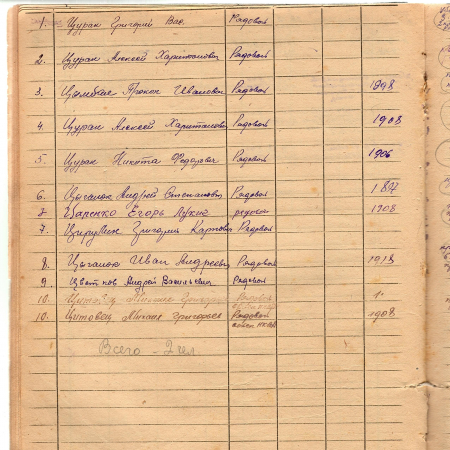 1. Цурак Григорий Вас. Рядовой
2. Цурак Алексей Харитонович Рядовой
3. Цымбал Прокоп Иванович Рядовой 1908
4. Цурак Алексей Харитонович Рядовой 1908
5. Цурак Никита Федорович Рядовой 1906
6. Цыганок Андрей Степанович Рядовой
7 Царенко Егорь Лукич рядовой 1908
7. Григорий Карпович Рядовой
8. Цыганок Иван Андреевич Рядовой 1918
9. Цветков Андрей Васильевич Рядовой
10. Цитовец Михаил Григорьев
10. Цитовец Михаил Григорьев Рядовой 1908
Всего - 2 чел